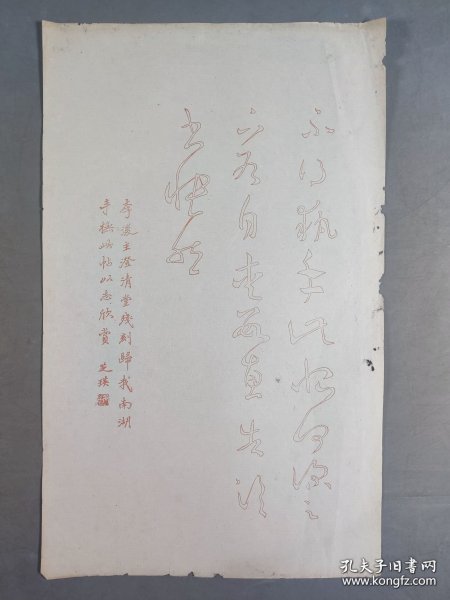 不得執手此恨何深足
下各自愛數惠告臨
書悵然
李後主澄清堂殘刻歸我南湖
手橅此帖以志欣賞 芝瑛
孔夫子旧书网
www.kongfz.com